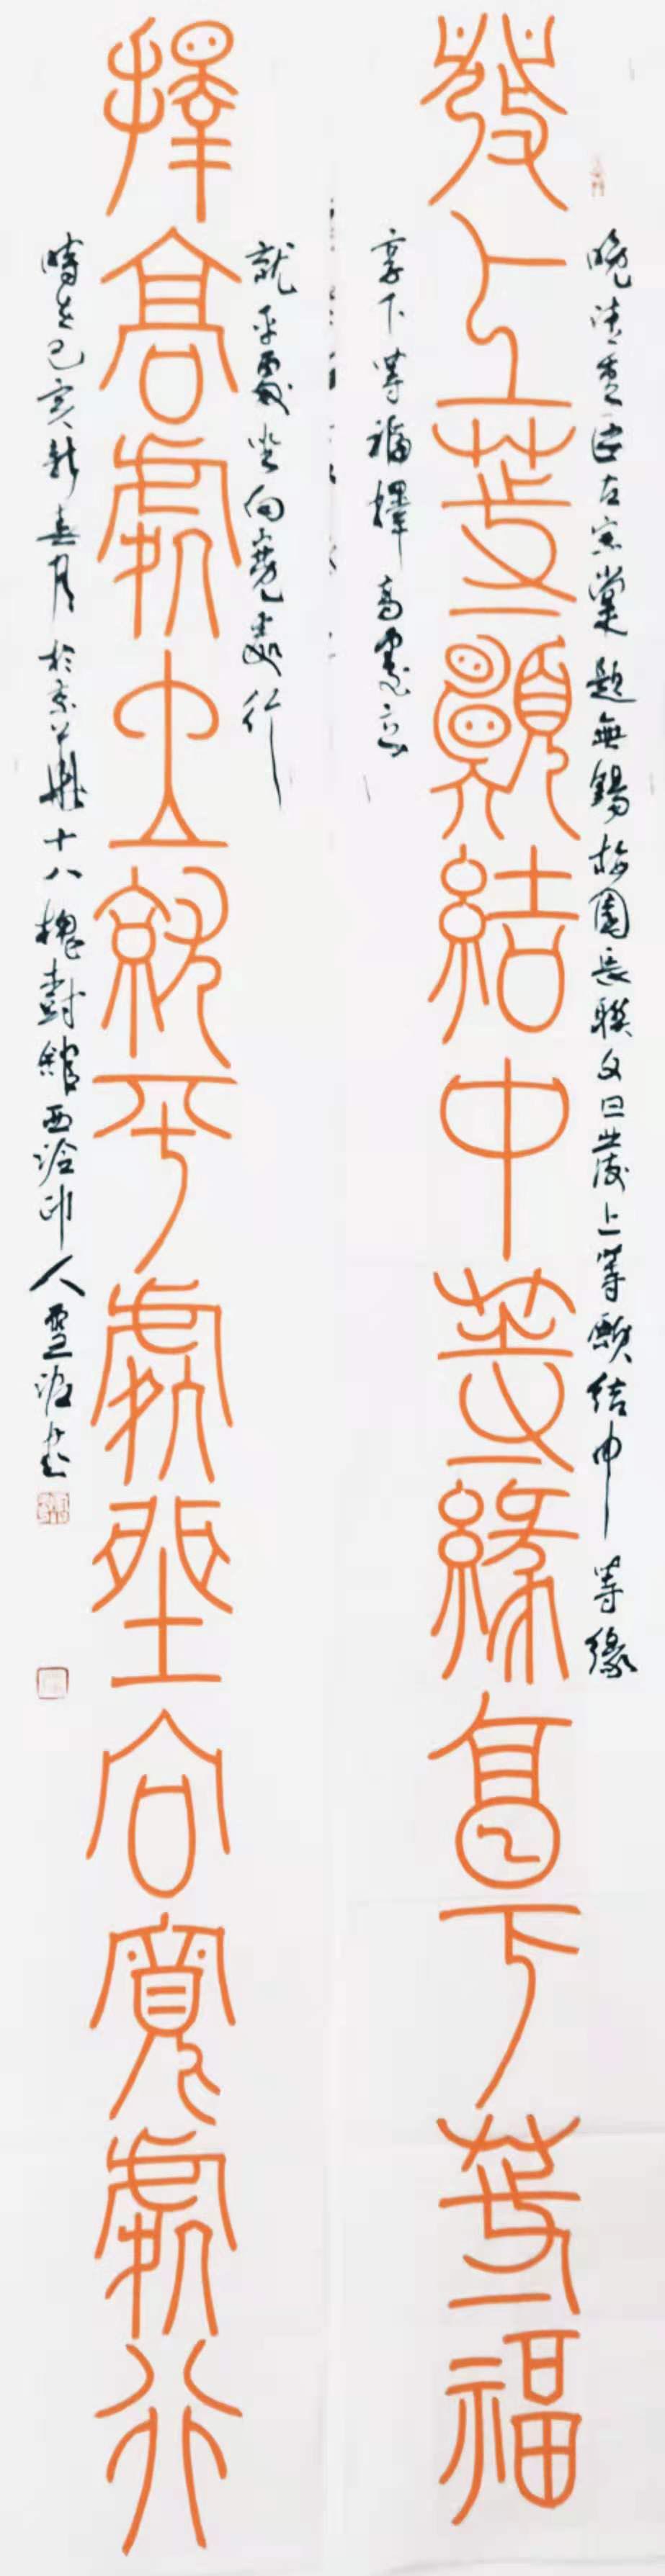 晚清重臣左宗棠題無錫梅園長聯文曰發上等願結中等緣
發上等願結中等緣享下等福
享下等福擇高處立
就平處坐向寬處行
擇高處立就平處坐向寬處行
時在己亥新月於京華十八槐館西泠印人雪波書